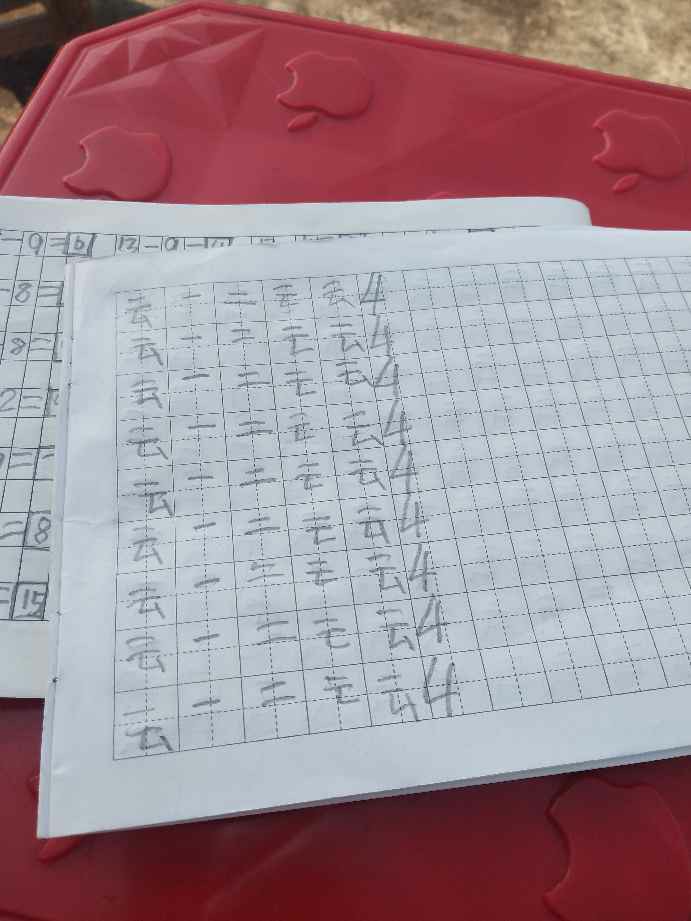 -9=
12-9=
-8=
8=
2=
=
=8
=15
云 一 二 云 云 4
云 一 二 云 云 4
云 一 二 云 云 4
云 一 二 云 云 4
云 一 二 云 云 4
云 一 二 云 云 4
云 一 二 云 云 4
云 一 二 云 云 4
云 一 二 云 云 4